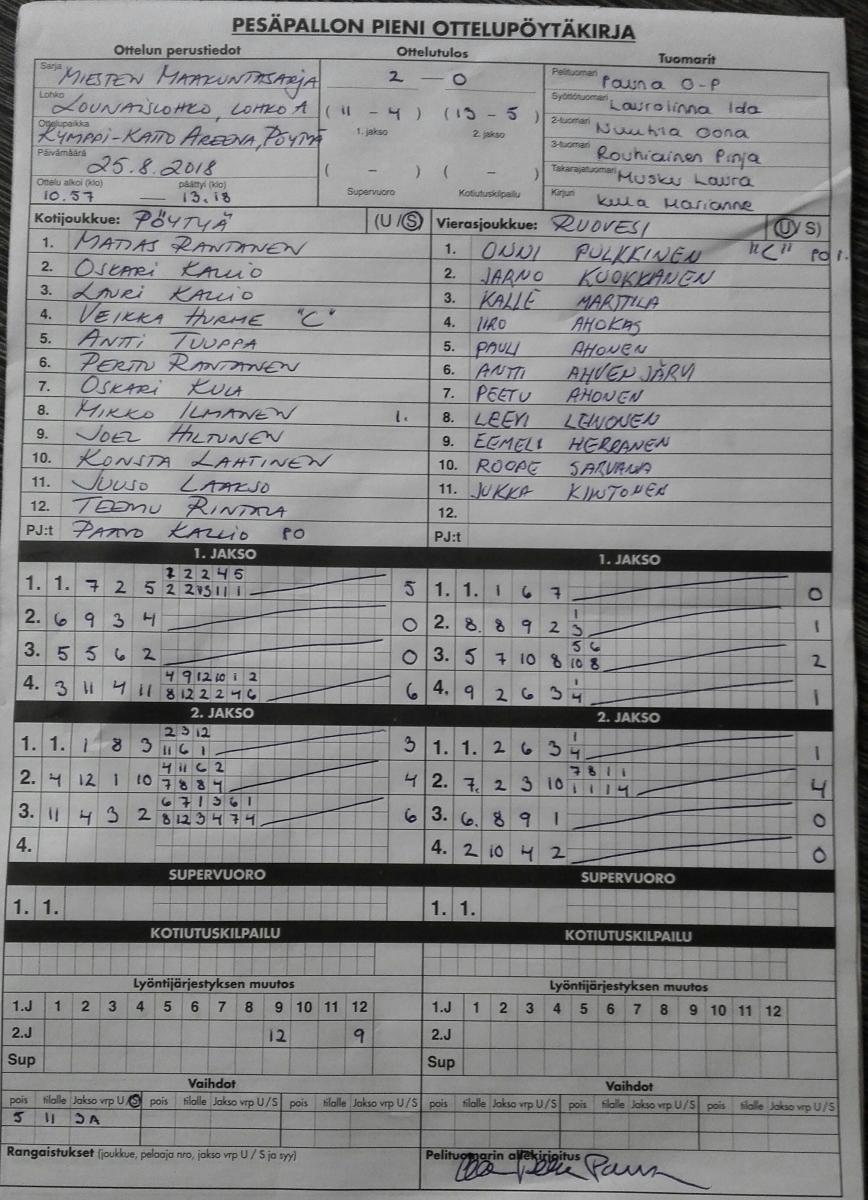 PESÄPALLON PIENI OTTELUPÖYTÄKIRJA
Ottelun perustiedot Ottelutulos Tuomarit
Sarja MIESTEN MAAKUNTASARJA
Lohko LOUNAISLOHKO, LOHKO A
Ottelupaikka KYMPPI-KATTO AREENA, PÖYTYÄ
Päivämäärä 25.8.2018
Ottelu alkoi (klo) päättyi (klo)
10.57 — 13.18
2 — 0
(11 - 4) (13 - 5)
1. jakso 2. jakso
( - ) ( - )
Supervuoro Kotiutuskilpailu
Pelituomari Pauna O-P
Syöttötuomari Laurolinna Ida
2-tuomari Nuuhia Oona
3-tuomari Rouhiainen Pinja
Takarajatuomari Musku Laura
Kirjuri Kula Marianne
Kotijoukkue: PÖYTYÄ (U/S)
1. MATIAS RANTANEN
2. OSKARI KALLIO
3. LAURI KALLIO
4. VEIKKA HURME "C"
5. ANTTI TUUPPA
6. PERTTU RANTANEN
7. OSKARI KULA
8. MIKKO ILMANEN 1.
9. JOEL HILTUNEN
10. KONSTA LAHTINEN
11. JUUSO LAAKSO
12. TEEMU RINTALA
PJ:t PAAVO KALLIO PO
Vierasjoukkue: RUOVESI (U/S)
1. ONNI PULKKINEN "C" PO 1.
2. JARNO KUOKKANEN
3. KALLE MARTTILA
4. IIRO AHOKAS
5. PAULI AHONEN
6. ANTTI AHVENJÄRVI
7. PEETU AHONEN
8. LEEVI LEINONEN
9. EEMELI HERRANEN
10. ROOPE SARVANA
11. JUKKA KINTONEN
12.
PJ:t
1. JAKSO
1. 1. 7 2 5 2 2 2 4 5 5
2 2 1 1
2. 6 9 3 4 0
3. 5 5 6 2 0
4. 3 11 4 11 4 9 12 10 1 2 6
8 12 2 2 4 6
2. JAKSO
1. 1. 1 8 3 2 3 12 3
11 6 1
2. 4 12 1 10 4 11 6 2 4
7 8 8 4
3. 11 4 3 2 6 7 1 3 6 1 6
8 12 3 4 7 4
4.
SUPERVUORO
1. 1.
KOTIUTUSKILPAILU
1. JAKSO
1. 1. 1 6 7 0
2. 8. 8 9 2 1 1
3
3. 5 7 10 8 5 6 2
10 8
4. 9 2 6 3 1 1
4
2. JAKSO
1. 1. 2 6 3 1 1
4
2. 7. 2 3 10 7 8 1 1 4
1 1 1 4
3. 6. 8 9 1 0
4. 2 10 4 2 0
SUPERVUORO
1. 1.
KOTIUTUSKILPAILU
Lyöntijärjestyksen muutos
1.J 1 2 3 4 5 6 7 8 9 10 11 12
2.J 12 9
Sup
Vaihdot
pois tilalle Jakso vrp U/S pois tilalle Jakso vrp U/S pois tilalle Jakso vrp U/S
5 11 3A
Rangaistukset (joukkue, pelaaja nro, jakso vrp U / S ja syy)
Lyöntijärjestyksen muutos
1.J 1 2 3 4 5 6 7 8 9 10 11 12
2.J
Sup
Vaihdot
pois tilalle Jakso vrp U/S pois tilalle Jakso vrp U/S pois tilalle Jakso vrp U/S
Pelituomarin allekirjoitus